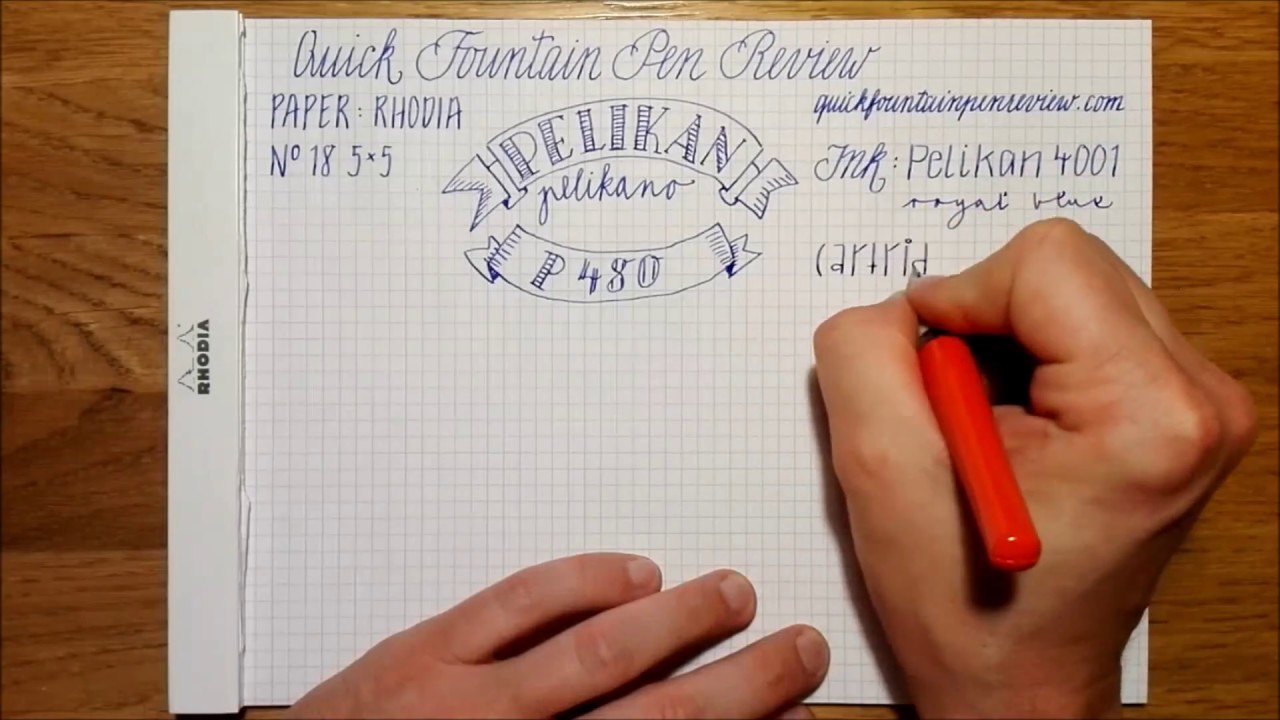 Quick Fountain Pen Review
PAPER: RHODIA
Nº 18 5×5
PELIKAN
pelikano
P 480
quickfountainpenreview.com
Ink: Pelikan 4001
royal blue
(artrid
RHODIA